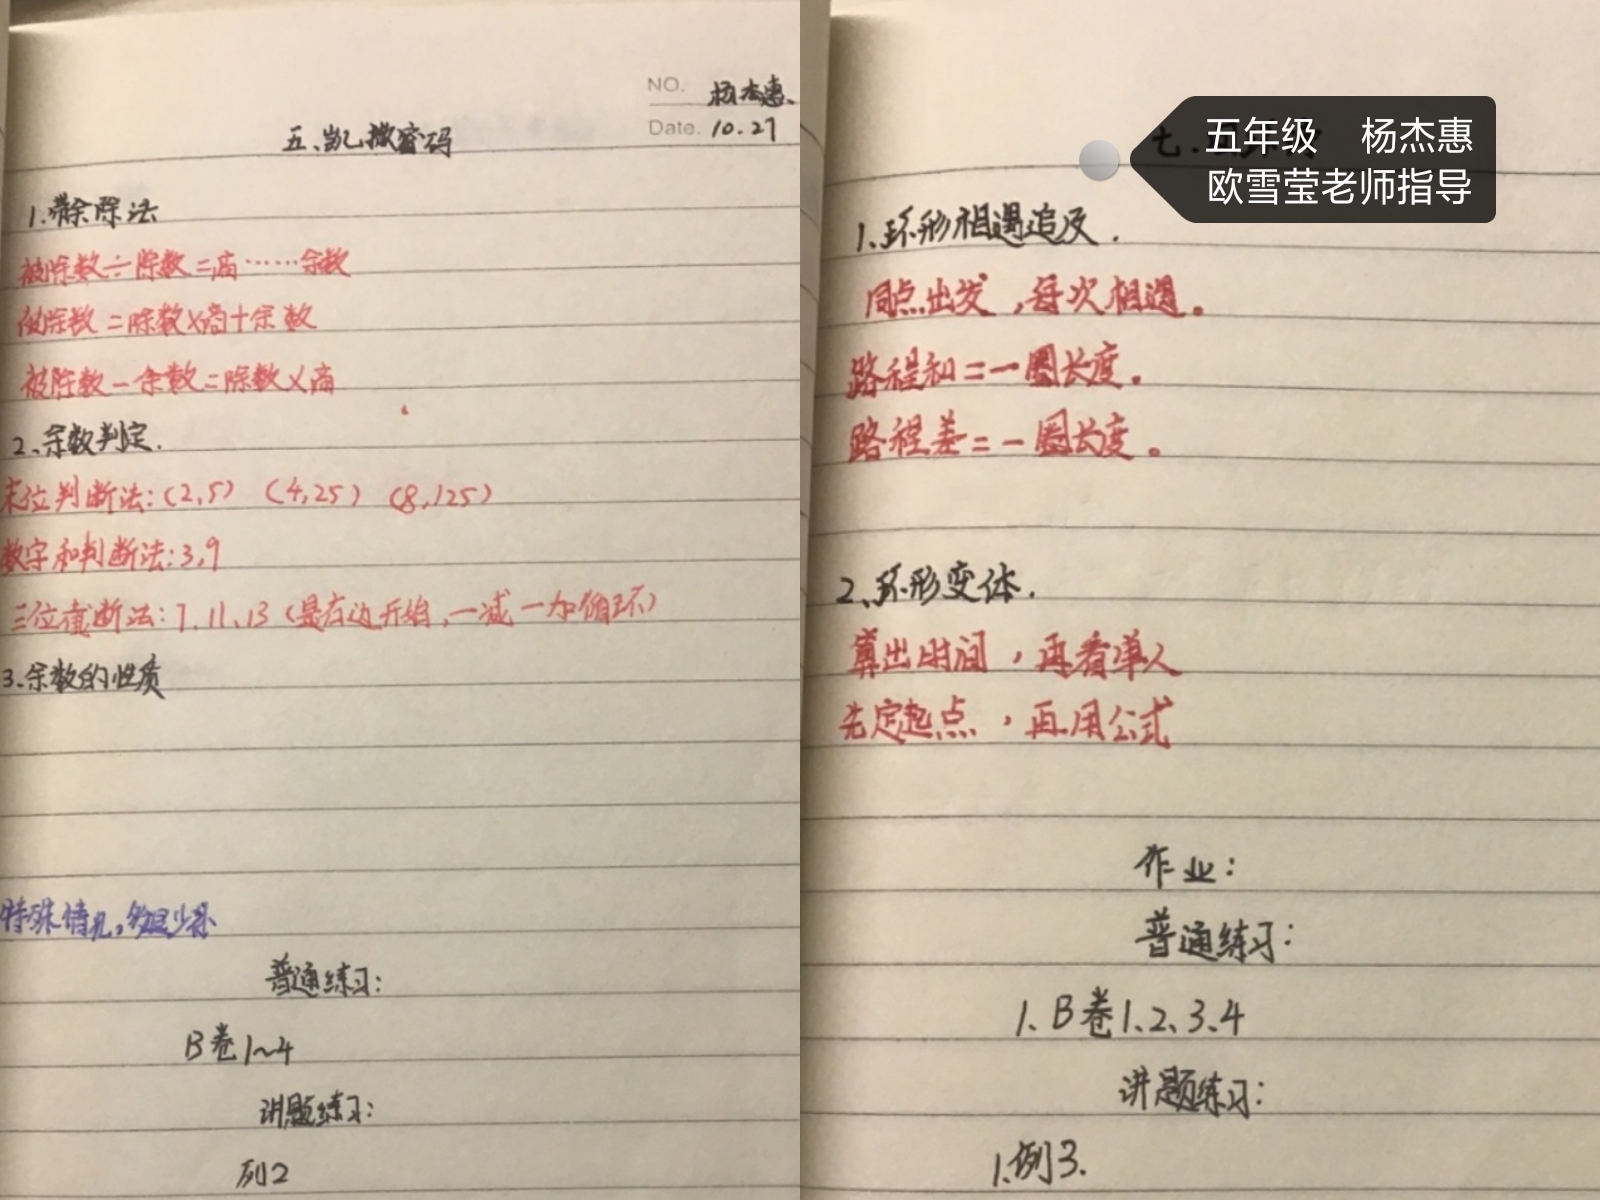 NO. 杨杰惠
Date. 10.27
五、凯撒密码
1.带余除法
被除数÷除数=商……余数
被除数=除数×商+余数
被除数-余数=除数×商
2、余数判定.
末位判断法:(2,5) (4,25) (8,125)
数字和判断法:3,9
三位断法:7、11、13(最右边开始,一减一加循环)
3.余数的性质
特殊情况,
普通练习:
B卷1~4
讲题练习:
列2
五年级 杨杰惠
欧雪莹老师指导
七、
1、环形相遇追及.
同点出发,每次相遇。
路程和=一圈长度。
路程差=一圈长度。
2、环形变体.
算出时间,再看单人
先定起点,再用公式
作业:
普通练习:
1、B卷1、2、3、4
讲题练习:
1.例3.